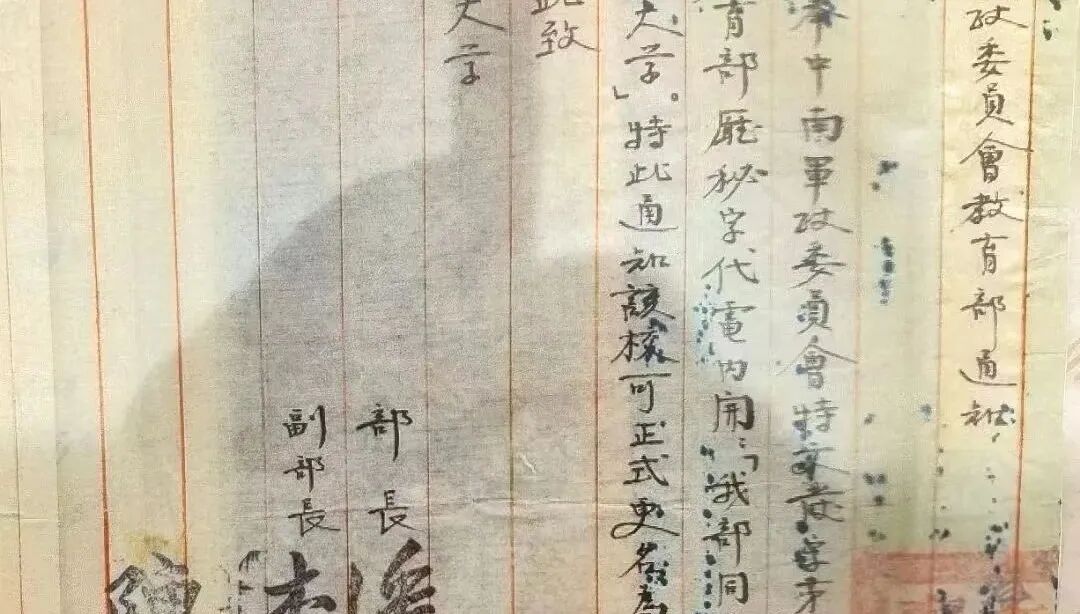 政委員會教育部通知
中南軍政委員會特文发字才
育部厅秘字代電内開:「我部同
大学」。特此通知該校可正式更名為
此致
大学
部長
副部長